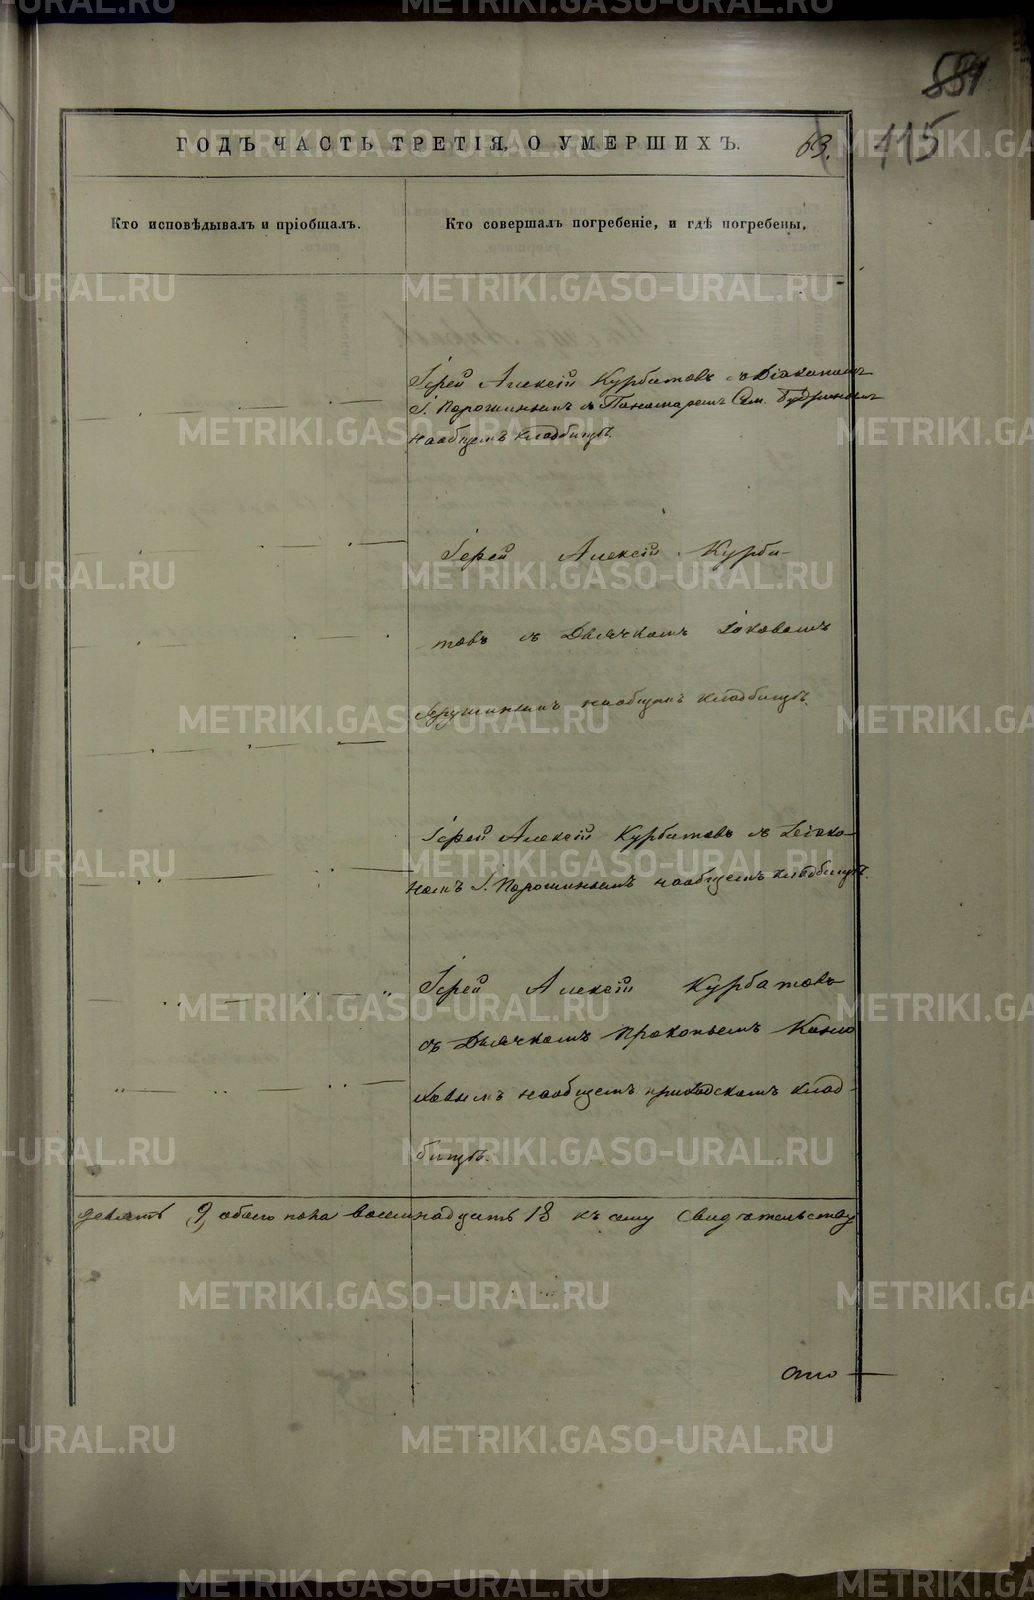 881
115
ГОДЪ ЧАСТЬ ТРЕТІЯ, О УМЕРШИХЪ.
63.
Кто исповѣдывалъ и пріобщалъ.
Кто совершалъ погребеніе, и гдѣ погребены.
Іерей Алексій Курбатовъ съ Діакономъ
І. Порошинымъ съ Пономаремъ Сим.
на общемъ кладбищѣ.
Іерей Алексій Курба-
товъ съ Дьячкомъ Іаковомъ
на общемъ кладбищѣ.
Іерей Алексій Курбатовъ съ Діако-
номъ І. Порошинымъ на общемъ кладбищѣ.
Іерей Алексій Курбатовъ
съ Дьячкомъ Прокопьемъ
на общемъ приходскомъ клад-
бищѣ.
девять 9, обоего пола восемнадцать 18 къ сему свидѣтельству
METRIKI.GASO-URAL.RU